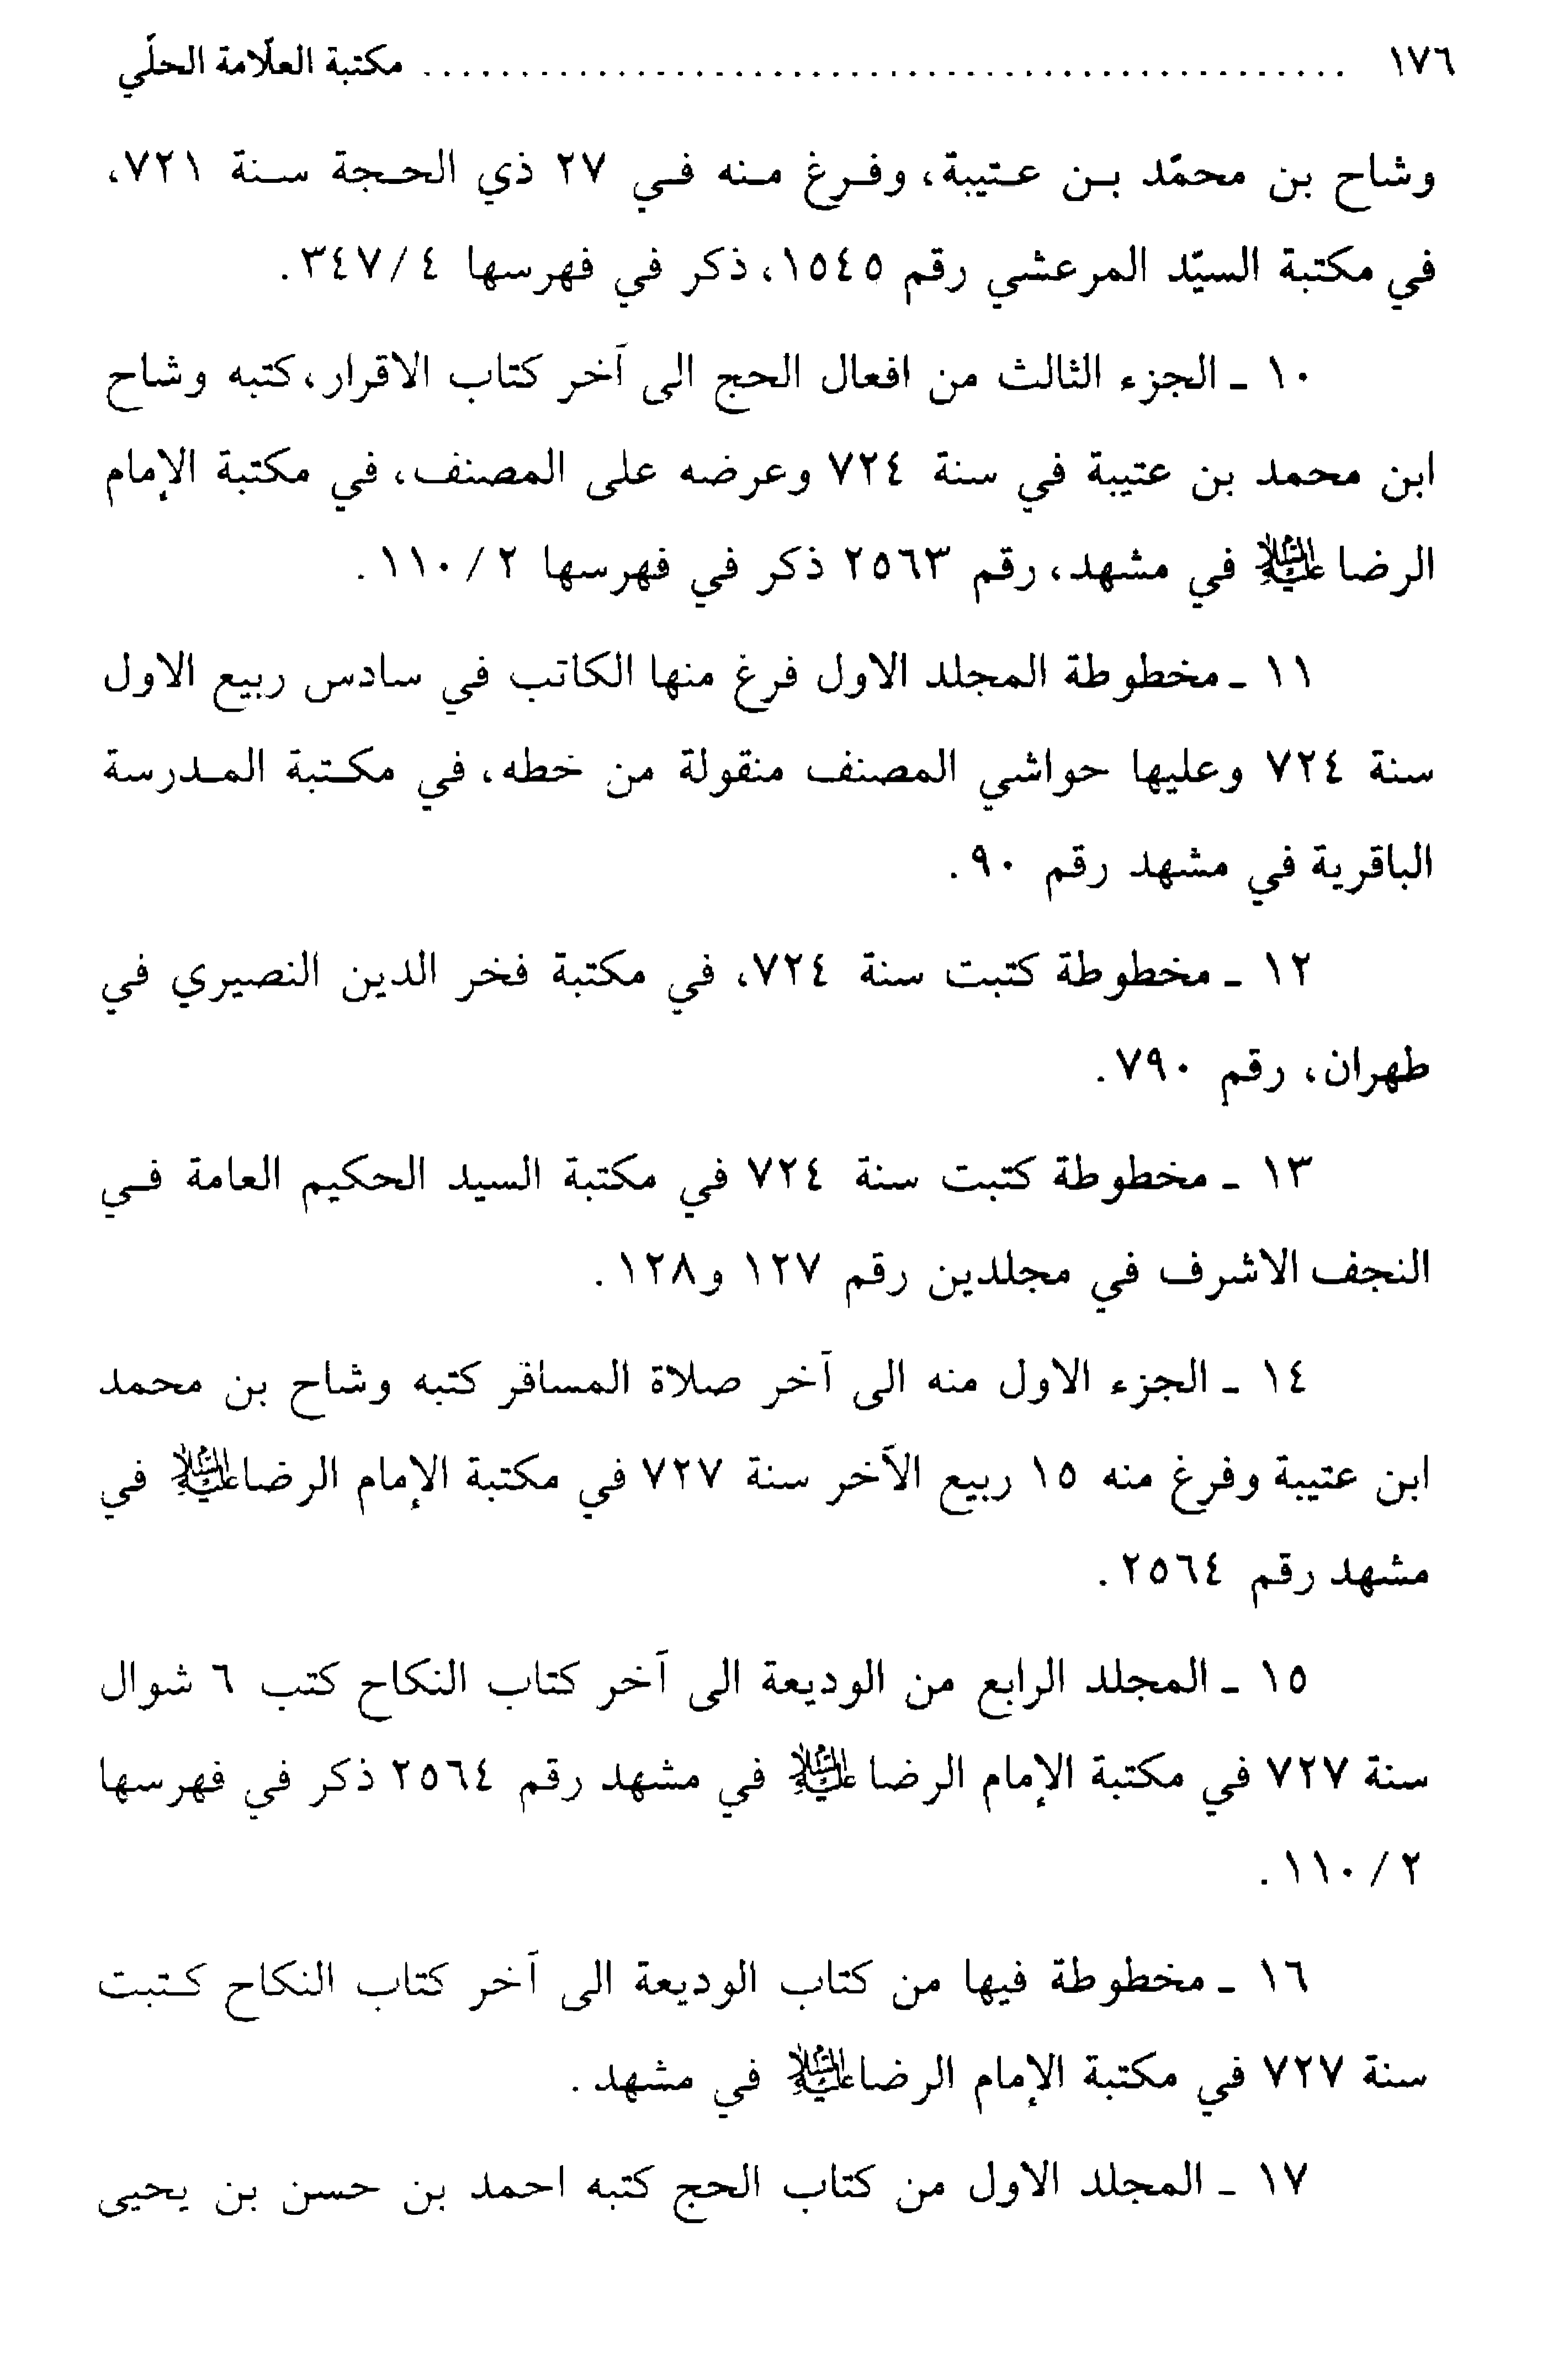 ١٧٦ .................................................. مكتبة العلّامة الحلّي
وشاح بن محمّد بن عتيبة، وفرغ منه في ٢٧ ذي الحجة سنة ٧٢١،
في مكتبة السيّد المرعشي رقم ١٥٤٥، ذكر في فهرسها ٤ / ٣٤٧.
١٠ ـ الجزء الثالث من افعال الحج الى آخر كتاب الاقرار، كتبه وشاح
ابن محمد بن عتيبة في سنة ٧٢٤ وعرضه على المصنف، في مكتبة الإمام
الرضا عليه السلام في مشهد، رقم ٢٥٦٣ ذكر في فهرسها ٢ / ١١٠.
١١ ـ مخطوطة المجلد الاول فرغ منها الكاتب في سادس ربيع الاول
سنة ٧٢٤ وعليها حواشي المصنف منقولة من خطه، في مكتبة المدرسة
الباقرية في مشهد رقم ٩٠.
١٢ ـ مخطوطة كتبت سنة ٧٢٤، في مكتبة فخر الدين النصيري في
طهران، رقم ٧٩٠.
١٣ ـ مخطوطة كتبت سنة ٧٢٤ في مكتبة السيد الحكيم العامة في
النجف الاشرف في مجلدين رقم ١٢٧ و١٢٨.
١٤ ـ الجزء الاول منه الى آخر صلاة المسافر كتبه وشاح بن محمد
ابن عتيبة وفرغ منه ١٥ ربيع الآخر سنة ٧٢٧ في مكتبة الإمام الرضا عليه السلام في
مشهد رقم ٢٥٦٤.
١٥ ـ المجلد الرابع من الوديعة الى آخر كتاب النكاح كتب ٦ شوال
سنة ٧٢٧ في مكتبة الإمام الرضا عليه السلام في مشهد رقم ٢٥٦٤ ذكر في فهرسها
٢ / ١١٠.
١٦ ـ مخطوطة فيها من كتاب الوديعة الى آخر كتاب النكاح كتبت
سنة ٧٢٧ في مكتبة الإمام الرضا عليه السلام في مشهد.
١٧ ـ المجلد الاول من كتاب الحج كتبه احمد بن حسن بن يحيى